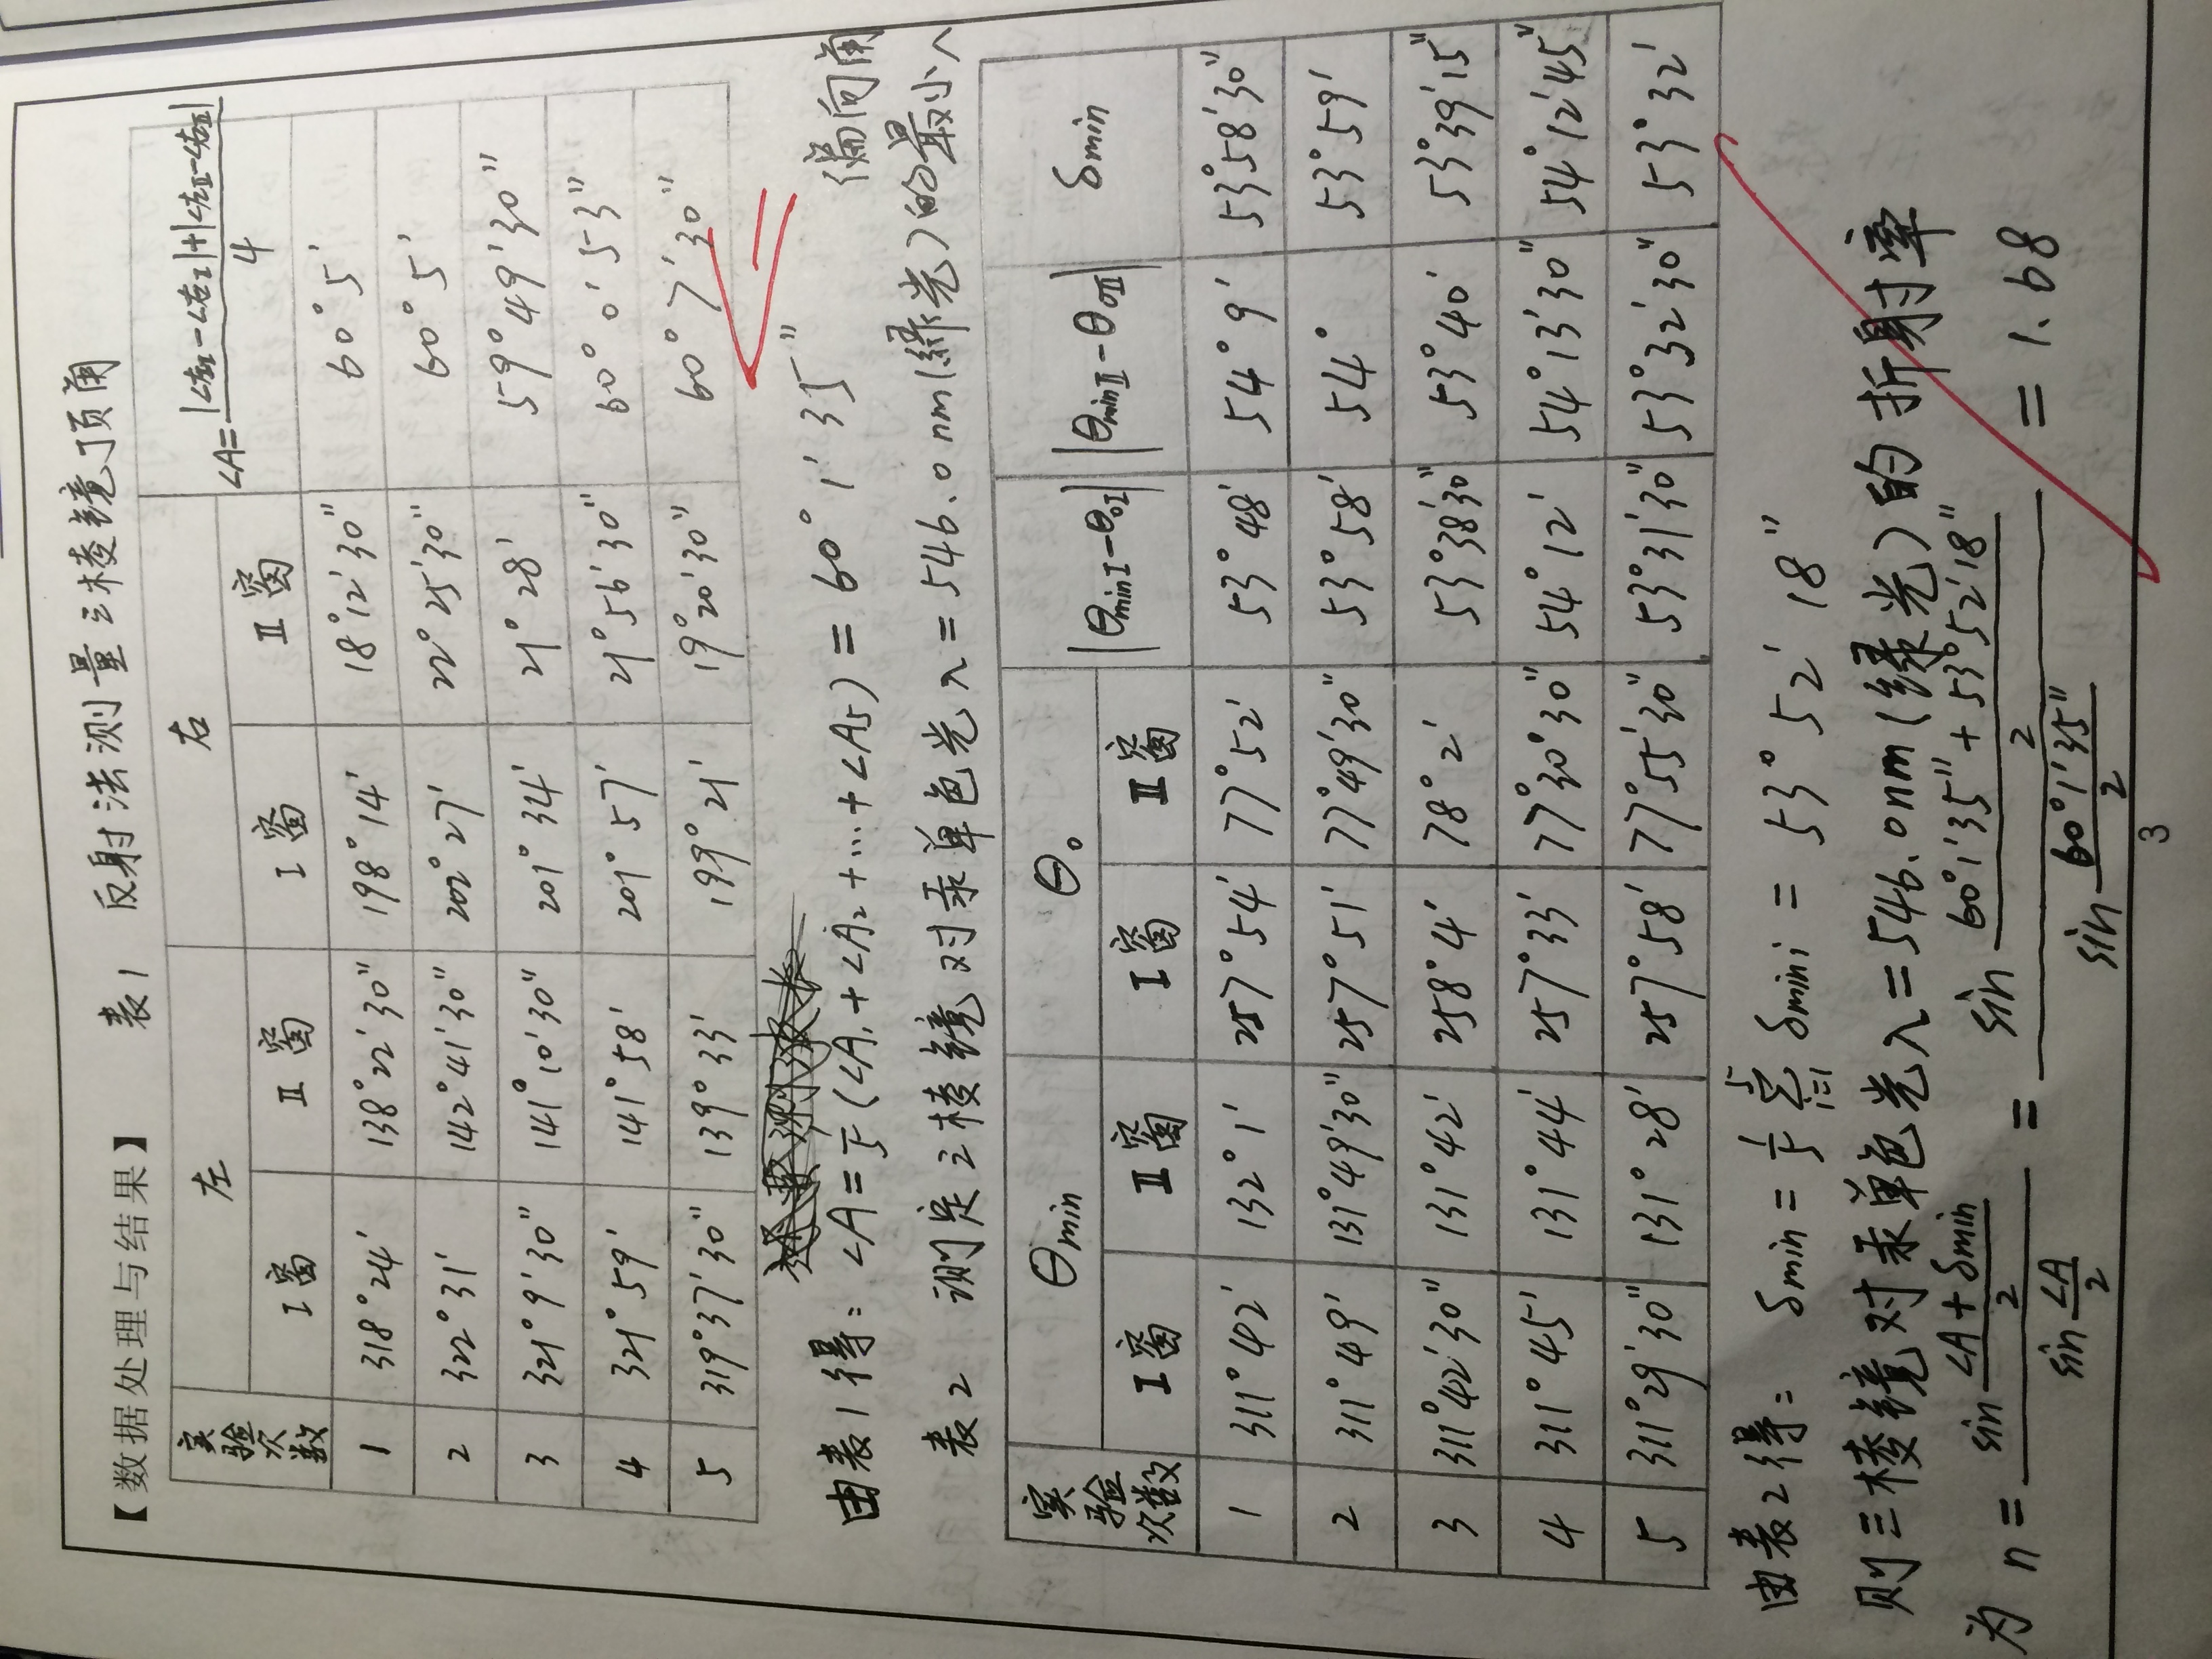 【数据处理与结果】 表1 反射法测量三棱镜顶角
实验次数 左 右 ∠A=(|∠左I-∠右I|+|∠左II-∠右II|)/4
I窗 II窗 I窗 II窗
1 318°24′ 138°22′30″ 198°14′ 18°12′30″ 60°5′
2 322°31′ 142°41′30″ 202°27′ 22°25′30″ 60°5′
3 321°9′30″ 141°10′30″ 201°34′ 21°28′ 59°49′30″
4 321°59′ 141°58′ 201°57′ 21°56′30″ 60°0′53″
5 319°37′30″ 139°33′ 199°21′ 19°20′30″ 60°7′30″
由表1得: ∠A=1/5(∠A₁+∠A₂+…+∠A₅)=60°1′35″
表2 测定三棱镜对汞单色光λ=546.0nm(绿光)的最小偏向角
实验次数 θmin θ₀ |θminI-θ₀I| |θminII-θ₀II| δmin
I窗 II窗 I窗 II窗
1 311°42′ 132°1′ 257°54′ 77°52′ 53°48′ 54°9′ 53°58′30″
2 311°49′ 131°49′30″ 257°51′ 77°49′30″ 53°58′ 54° 53°59′
3 311°42′30″ 131°42′ 258°4′ 78°2′ 53°38′30″ 53°40′ 53°39′15″
4 311°45′ 131°44′ 257°33′ 77°30°30″ 54°12′ 54°13′30″ 54°12′45″
5 311°29′30″ 131°28′ 257°58′ 77°55′30″ 53°31′30″ 53°32′30″ 53°32′
由表2得: δmin=1/5 Σ(i=1→5) δmini=53°52′18″
则三棱镜对汞单色光λ=546.0nm(绿光)的折射率
为 n=sin((∠A+δmin)/2)/sin(∠A/2)=sin((60°1′35″+53°52′18″)/2)/sin(60°1′35″/2)=1.68
3